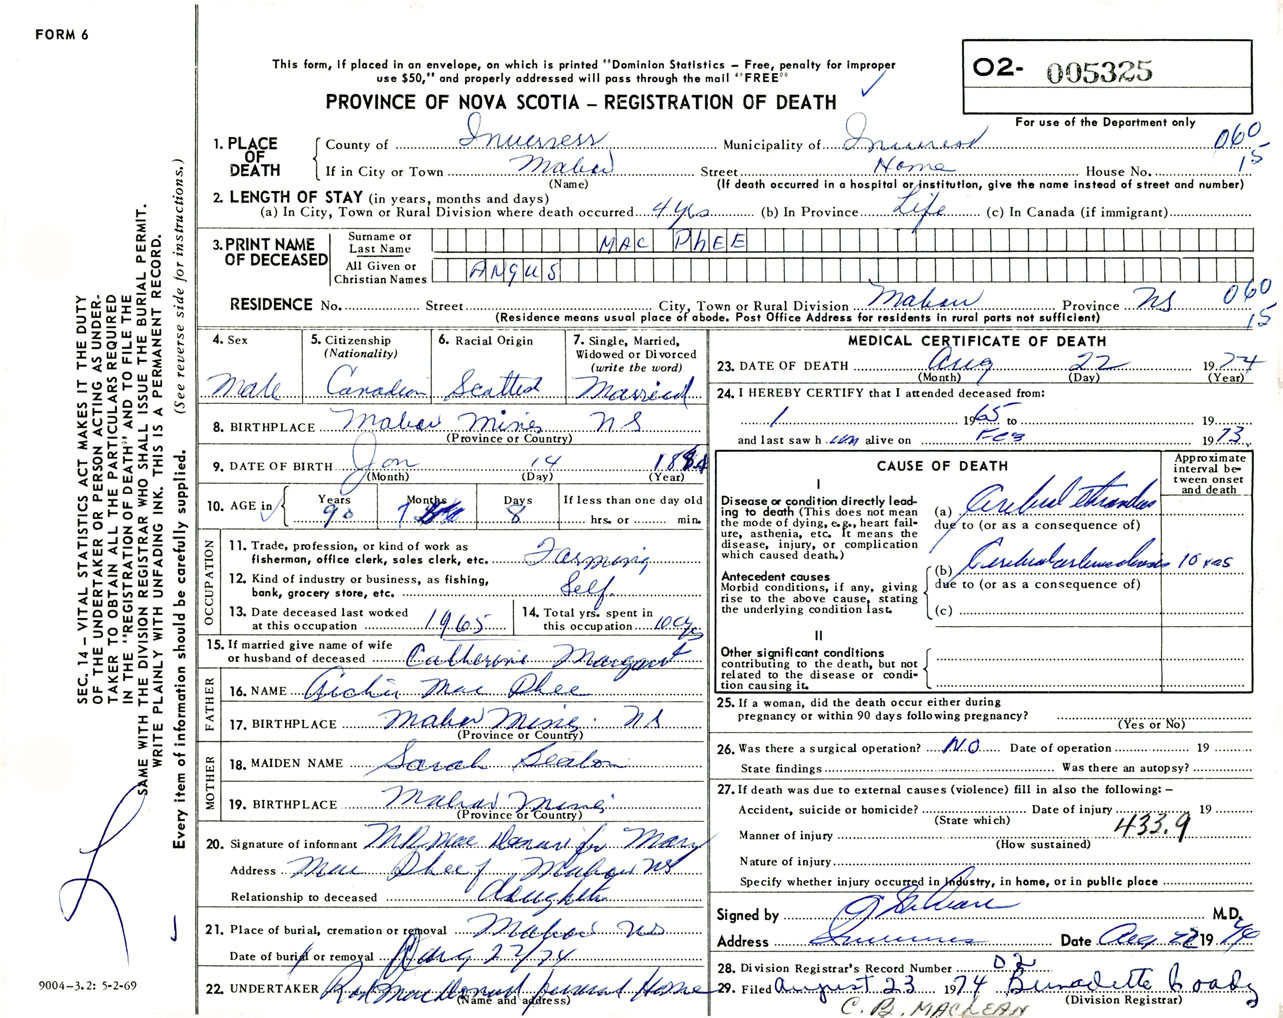 FORM 6
This form, if placed in an envelope, on which is printed "Dominion Statistics – Free, penalty for improper
use $50," and properly addressed will pass through the mail "FREE"
PROVINCE OF NOVA SCOTIA – REGISTRATION OF DEATH
O2- 005325
For use of the Department only
1. PLACE OF DEATH
County of Inverness Municipality of Inverness 060
If in City or Town Mabou Street Home House No. 15
(Name) (If death occurred in a hospital or institution, give the name instead of street and number)
2. LENGTH OF STAY (in years, months and days)
(a) In City, Town or Rural Division where death occurred 4 yrs (b) In Province Life (c) In Canada (if immigrant)
3. PRINT NAME OF DECEASED
Surname or Last Name MAC PHEE
All Given or Christian Names ANGUS
RESIDENCE No. Street City, Town or Rural Division Mabou Province NS 060
(Residence means usual place of abode. Post Office Address for residents in rural parts not sufficient) 15
4. Sex Male
5. Citizenship (Nationality) Canadian
6. Racial Origin Scottish
7. Single, Married, Widowed or Divorced (write the word) Married
8. BIRTHPLACE Mabou Mines NS
(Province or Country)
9. DATE OF BIRTH Jan 14 1884
(Month) (Day) (Year)
10. AGE in Years 90 Months 7 Days 8
If less than one day old
hrs. or min.
OCCUPATION
11. Trade, profession, or kind of work as
fisherman, office clerk, sales clerk, etc. Farming
12. Kind of industry or business, as fishing,
bank, grocery store, etc. Self
13. Date deceased last worked
at this occupation 1965
14. Total yrs. spent in
this occupation
15. If married give name of wife
or husband of deceased Catherine Margaret
FATHER
16. NAME Archie Mac Phee
17. BIRTHPLACE Mabou Mines NS
(Province or Country)
MOTHER
18. MAIDEN NAME Sarah Beaton
19. BIRTHPLACE Mabou Mines
(Province or Country)
20. Signature of informant for Mary
Address Mac Phee Mabou NS
Relationship to deceased daughter
21. Place of burial, cremation or removal Mabou NS
Date of burial or removal Aug 22/74
22. UNDERTAKER MacDonald Funeral Home
(Name and address)
MEDICAL CERTIFICATE OF DEATH
23. DATE OF DEATH Aug 22 1974
(Month) (Day) (Year)
24. I HEREBY CERTIFY that I attended deceased from:
1 1965 to 19
and last saw h im alive on Feb 1973
CAUSE OF DEATH
Approximate interval between onset and death
I
Disease or condition directly lead-
ing to death (This does not mean
the mode of dying, e.g., heart fail-
ure, asthenia, etc. It means the
disease, injury, or complication
which caused death.)
(a) Cerebral thrombosis
due to (or as a consequence of)
Antecedent causes
Morbid conditions, if any, giving
rise to the above cause, stating
the underlying condition last.
(b) Cerebral arteriosclerosis 10 yrs
due to (or as a consequence of)
(c)
II
Other significant conditions
contributing to the death, but not
related to the disease or condi-
tion causing it.
25. If a woman, did the death occur either during
pregnancy or within 90 days following pregnancy?
(Yes or No)
26. Was there a surgical operation? NO Date of operation 19
State findings Was there an autopsy?
27. If death was due to external causes (violence) fill in also the following: –
Accident, suicide or homicide? Date of injury 19
(State which) 433.9
Manner of injury
(How sustained)
Nature of injury
Specify whether injury occurred in Industry, in home, or in public place
Signed by M.D.
Address Inverness Date Aug 22 19
28. Division Registrar's Record Number 02
29. Filed August 23 1974 Bernadette
(Division Registrar)
C. B. MACLEAN
SEC. 14 – VITAL STATISTICS ACT MAKES IT THE DUTY
OF THE UNDERTAKER OR PERSON ACTING AS UNDER-
TAKER TO OBTAIN ALL THE PARTICULARS REQUIRED
IN THE "REGISTRATION OF DEATH" AND TO FILE THE
SAME WITH THE DIVISION REGISTRAR WHO SHALL ISSUE THE BURIAL PERMIT.
WRITE PLAINLY WITH UNFADING INK. THIS IS A PERMANENT RECORD.
Every item of information should be carefully supplied. (See reverse side for instructions.)
9004-3.2: 5-2-69